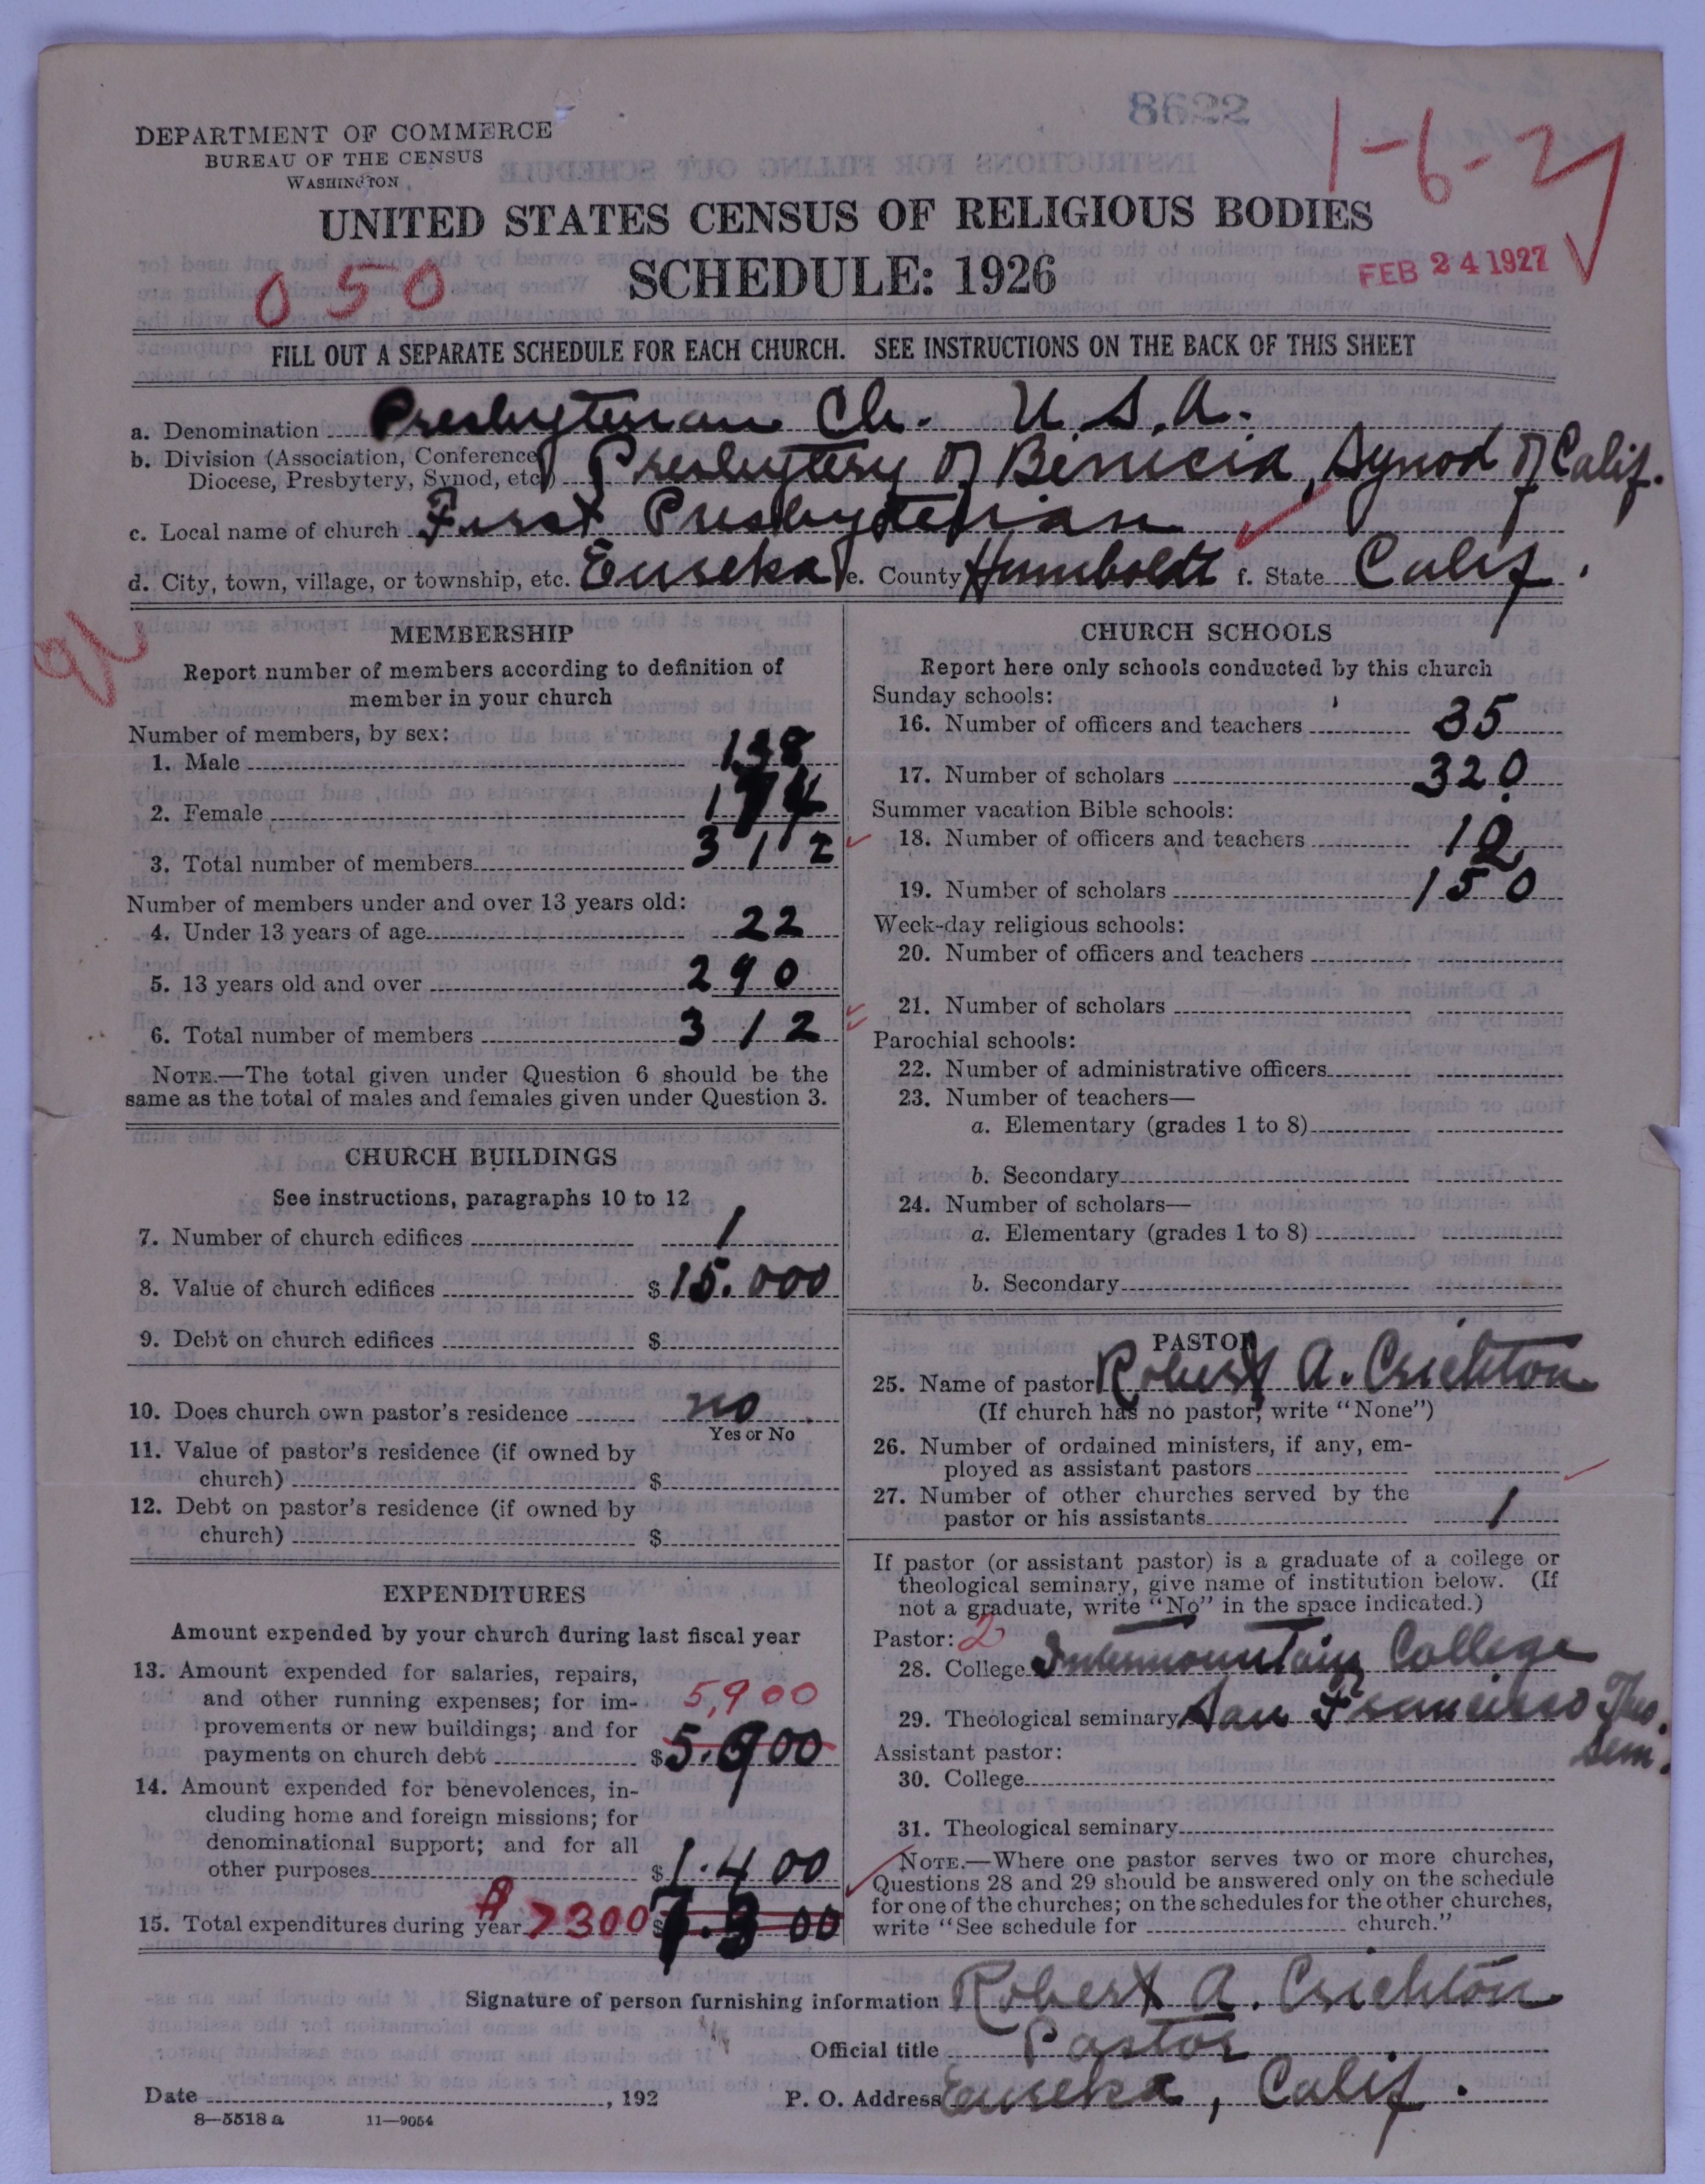 8622
1-6-2
DEPARTMENT OF COMMERCE
BUREAU OF THE CENSUS
WASHINGTON
UNITED STATES CENSUS OF RELIGIOUS BODIES
SCHEDULE: 1926
050
FEB 24 1927
FILL OUT A SEPARATE SCHEDULE FOR EACH CHURCH. SEE INSTRUCTIONS ON THE BACK OF THIS SHEET
a. Denomination Presbyterian Ch. U.S.A.
b. Division (Association, Conference, Presbytery of Benicia, Synod of Calif.
Diocese, Presbytery, Synod, etc.)
c. Local name of church First Presbyterian
d. City, town, village, or township, etc. Eureka e. County Humboldt f. State Calif.
MEMBERSHIP
Report number of members according to definition of
member in your church
Number of members, by sex:
1. Male 138
2. Female 174
3. Total number of members 312
Number of members under and over 13 years old:
4. Under 13 years of age 22
5. 13 years old and over 290
6. Total number of members 312
NOTE.—The total given under Question 6 should be the
same as the total of males and females given under Question 3.
CHURCH BUILDINGS
See instructions, paragraphs 10 to 12
7. Number of church edifices 1
8. Value of church edifices $15.000
9. Debt on church edifices $
10. Does church own pastor's residence no
Yes or No
11. Value of pastor's residence (if owned by
church) $
12. Debt on pastor's residence (if owned by
church) $
EXPENDITURES
Amount expended by your church during last fiscal year
13. Amount expended for salaries, repairs,
and other running expenses; for im- 5,900
provements or new buildings; and for
payments on church debt $5.900
14. Amount expended for benevolences, in-
cluding home and foreign missions; for
denominational support; and for all
other purposes $1.400
15. Total expenditures during year 7300 $7.300
CHURCH SCHOOLS
Report here only schools conducted by this church
Sunday schools:
16. Number of officers and teachers 35
17. Number of scholars 320
Summer vacation Bible schools:
18. Number of officers and teachers
19. Number of scholars 150
Week-day religious schools:
20. Number of officers and teachers
21. Number of scholars
Parochial schools:
22. Number of administrative officers
23. Number of teachers—
a. Elementary (grades 1 to 8)
b. Secondary
24. Number of scholars—
a. Elementary (grades 1 to 8)
b. Secondary
PASTOR
25. Name of pastor Robert A. Crichton
(If church has no pastor, write "None")
26. Number of ordained ministers, if any, em-
ployed as assistant pastors
27. Number of other churches served by the
pastor or his assistants 1
If pastor (or assistant pastor) is a graduate of a college or
theological seminary, give name of institution below. (If
not a graduate, write "No" in the space indicated.)
Pastor: 2
28. College Intermountain College
29. Theological seminary San Francisco Theo.
Sem.
Assistant pastor:
30. College
31. Theological seminary
NOTE.—Where one pastor serves two or more churches,
Questions 28 and 29 should be answered only on the schedule
for one of the churches; on the schedules for the other churches,
write "See schedule for church."
Signature of person furnishing information Robert A. Crichton
Official title Pastor
Date , 192 P. O. Address Eureka, Calif.
8—5518 a 11—9054